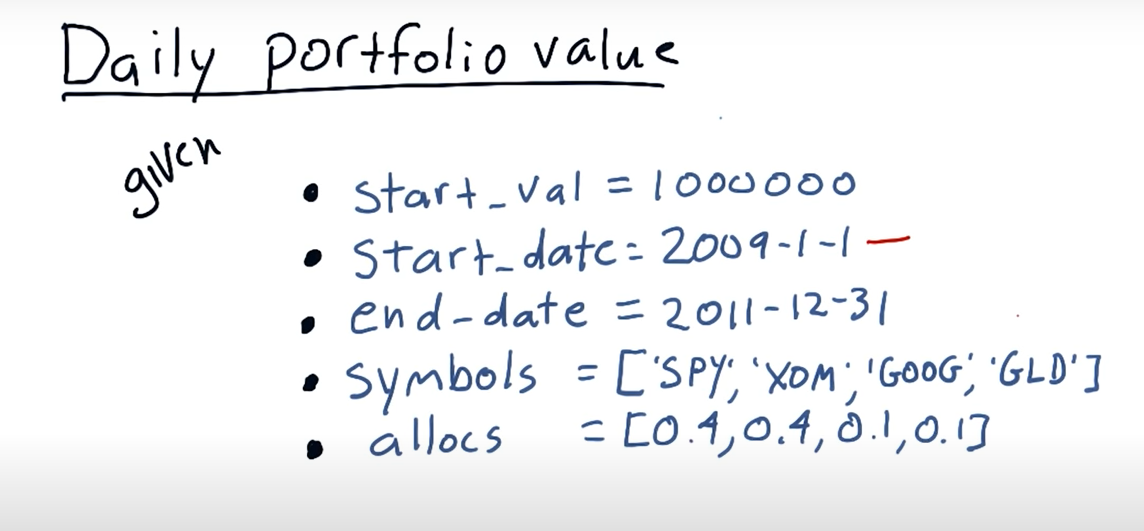 Daily portfolio value
given
• start_val = 1000000
• start_date = 2009-1-1
• end-date = 2011-12-31
• symbols = ['SPY', 'XOM', 'GOOG', 'GLD']
• allocs = [0.4, 0.4, 0.1, 0.1]